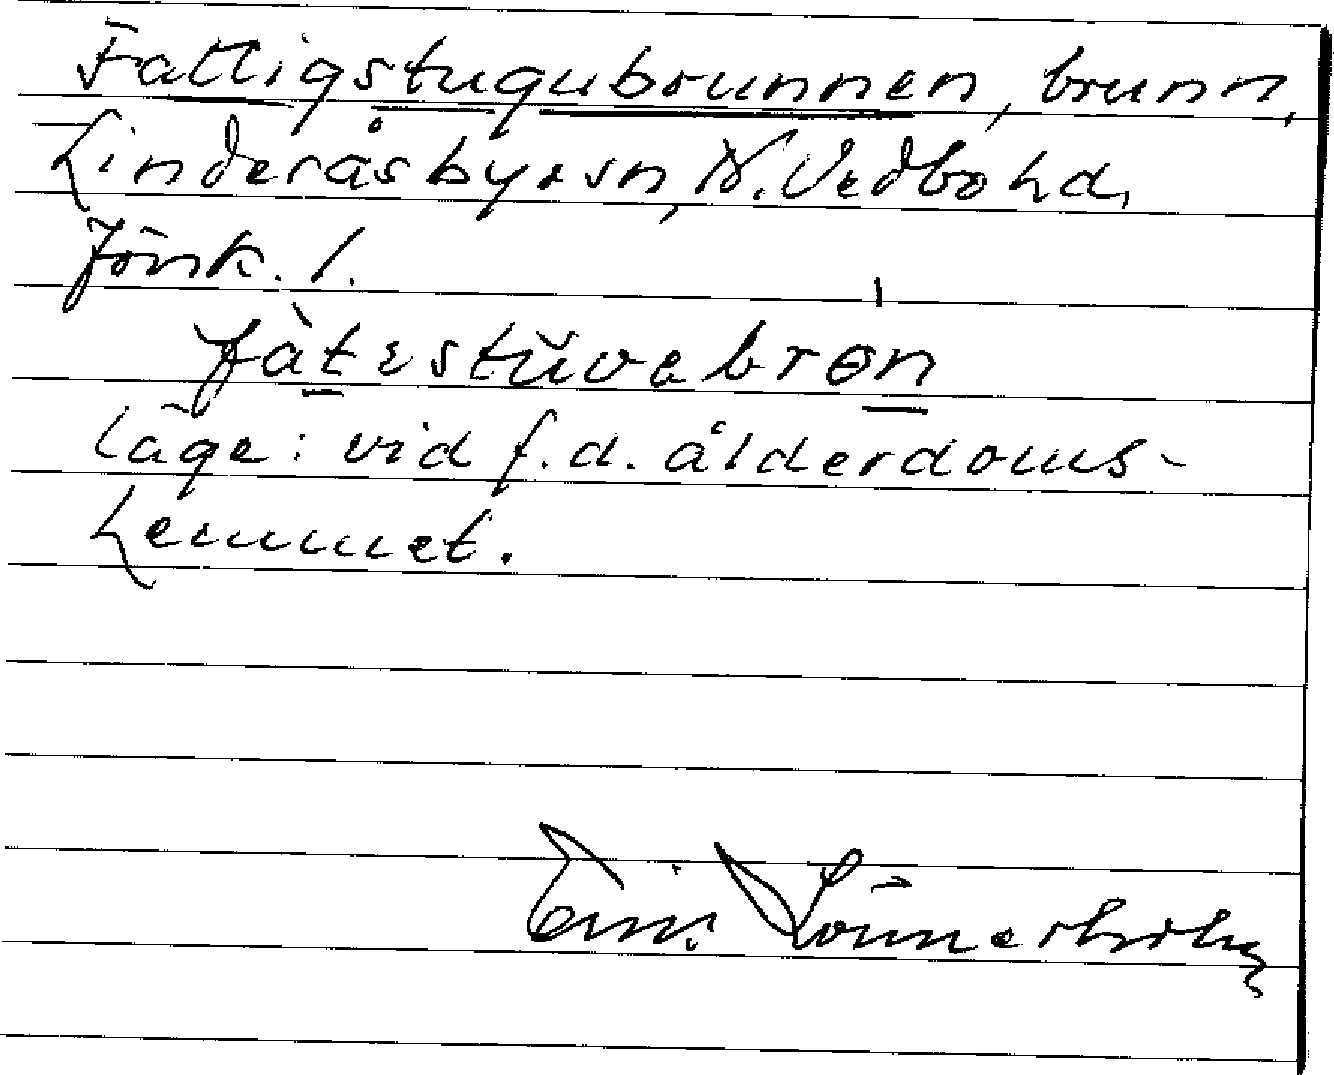 Fattigstugubrunnen, brunn,
Linderås by o. sn, N. Vedbo hd,
Jönk. l.
fàtestŭvebrøn
Läge: vid f.d. ålderdoms-
hemmet.